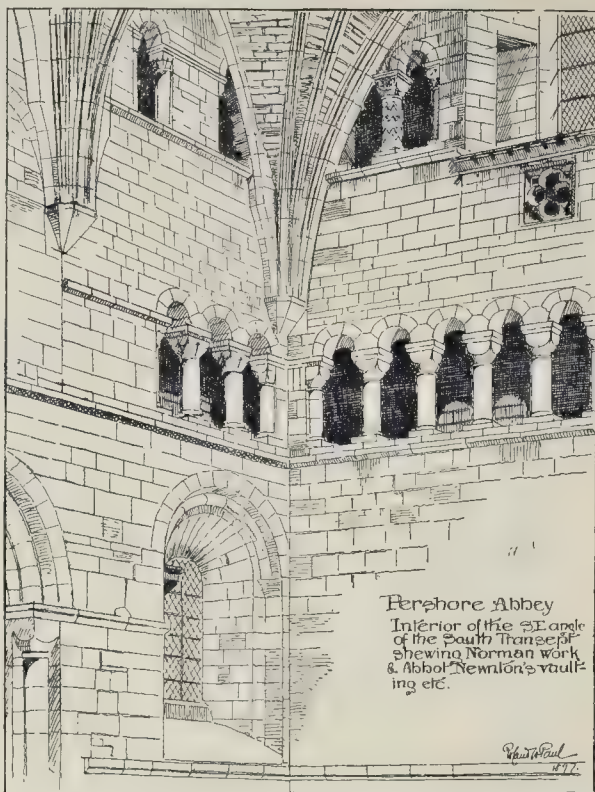 Pershore Abbey
Interior of the SE angle
of the South Transept
shewing Norman work
& Abbot Newnton's vault-
ing etc.
Roland W Paul
1897.